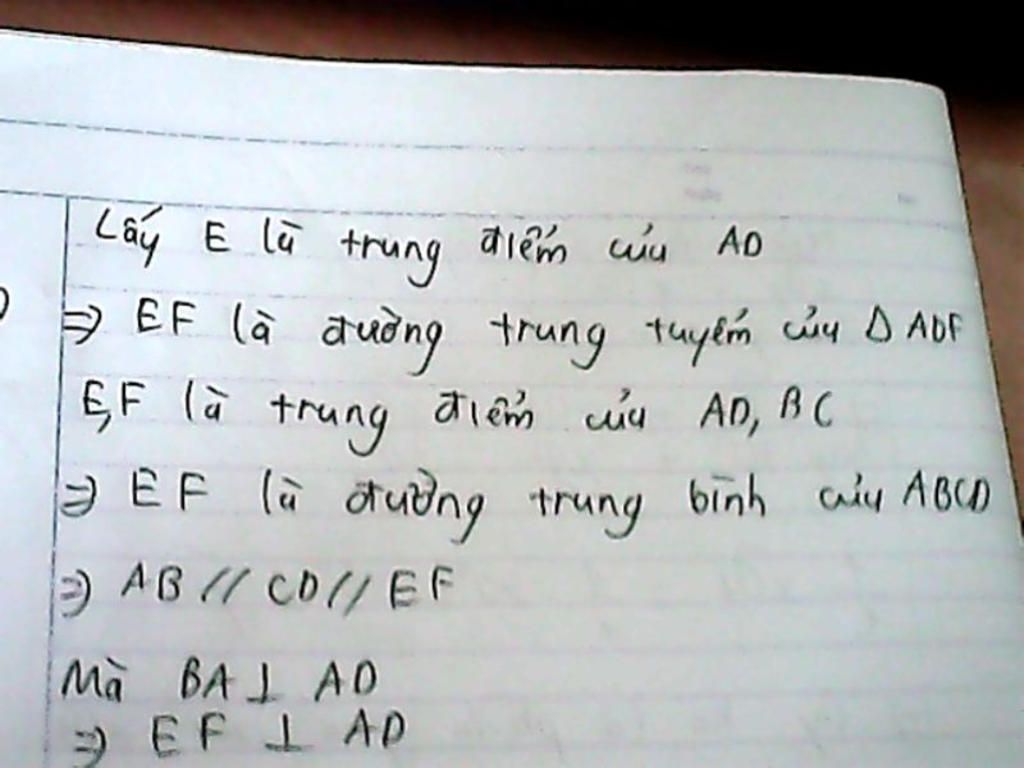 Lấy E là trung điểm của AD
⇒ EF là đường trung tuyến của Δ ADF
E,F là trung điểm của AD, BC
⇒ EF là đường trung bình của ABCD
⇒ AB // CD // EF
Mà BA ⊥ AD
⇒ EF ⊥ AD